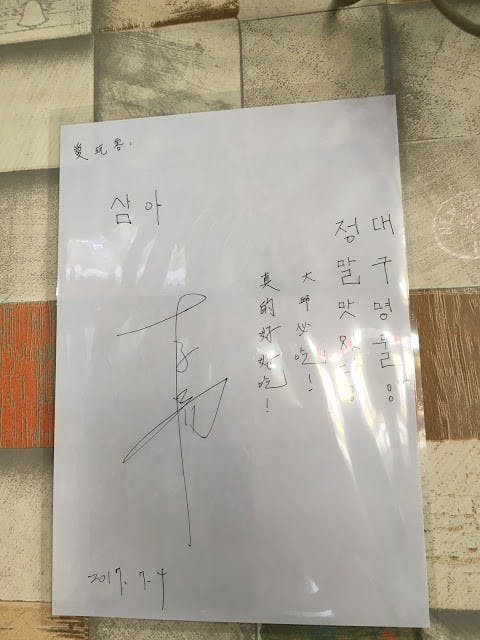 愛玩客:
삼아
대구명물
정말맛
大邱必吃!
真的好好吃!
2017. 7. 4